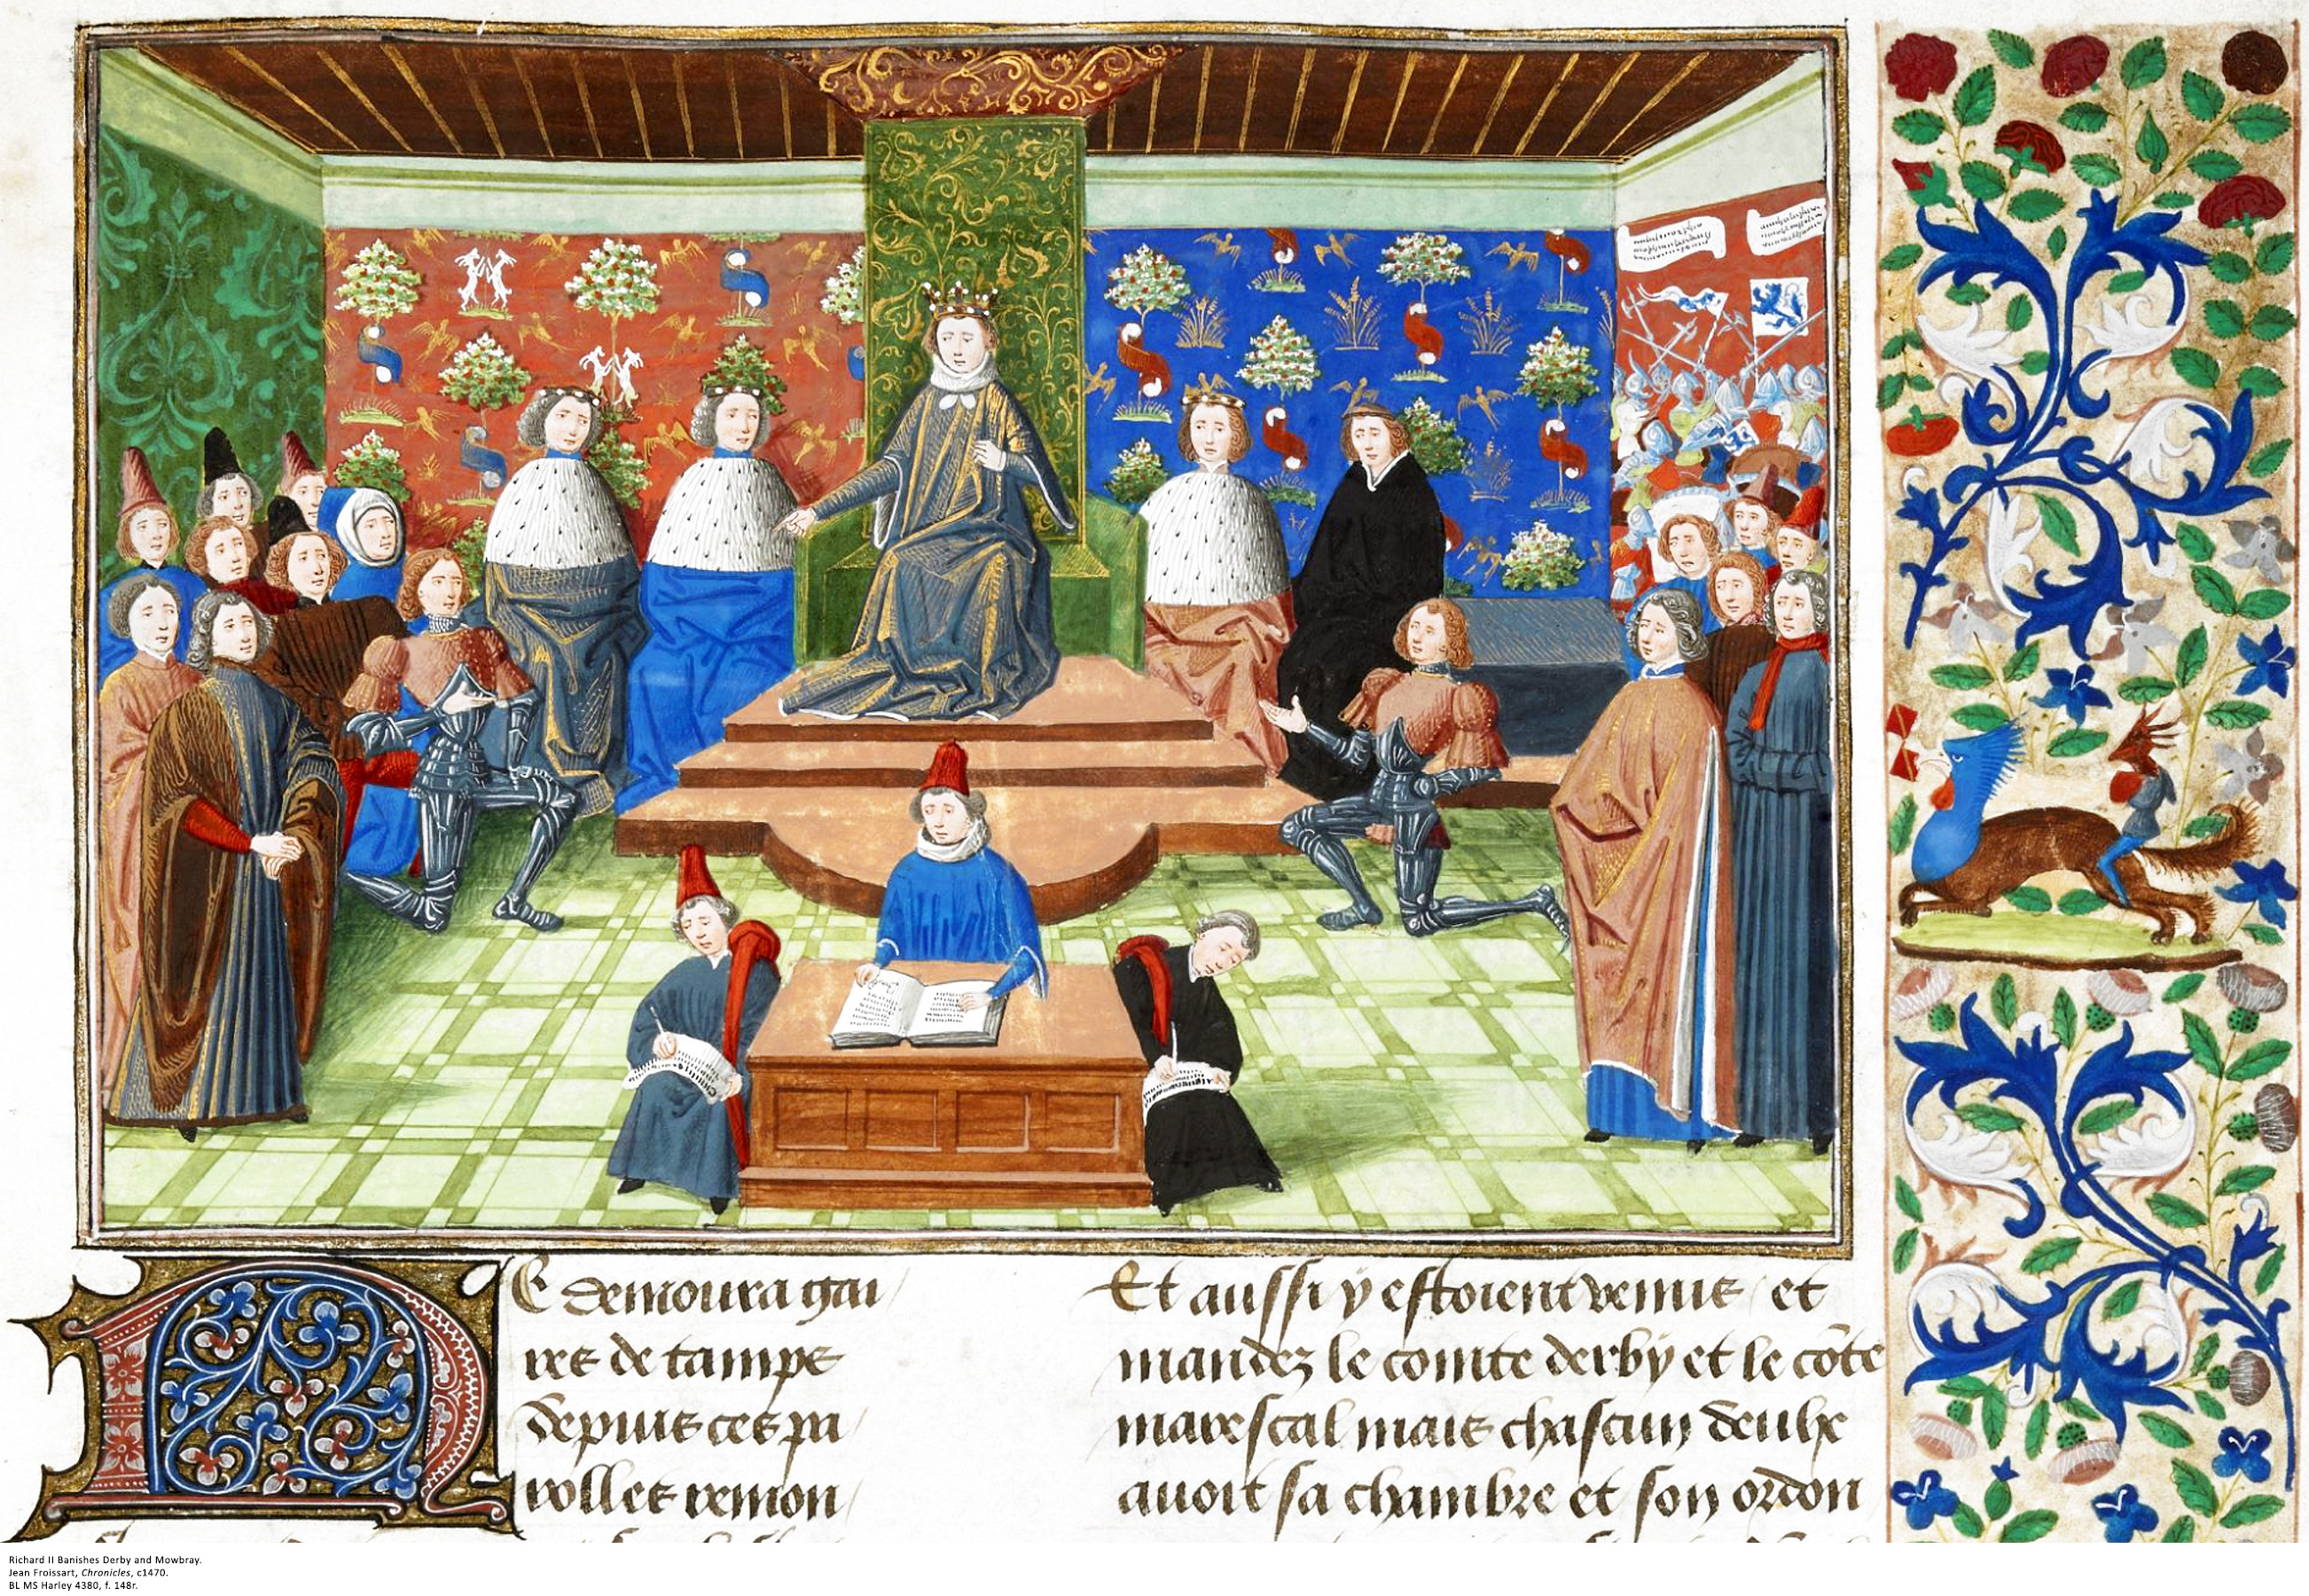 NE demoura gai
res de tampz
depuis ces pa
rolles remon
Et aussi y estoient venus et
mandez le comte derby et le cōte
marescal mais chascun deulx
auoit sa chambre et son ordon
Richard II Banishes Derby and Mowbray.
Jean Froissart, Chronicles, c1470.
BL MS Harley 4380, f. 148r.